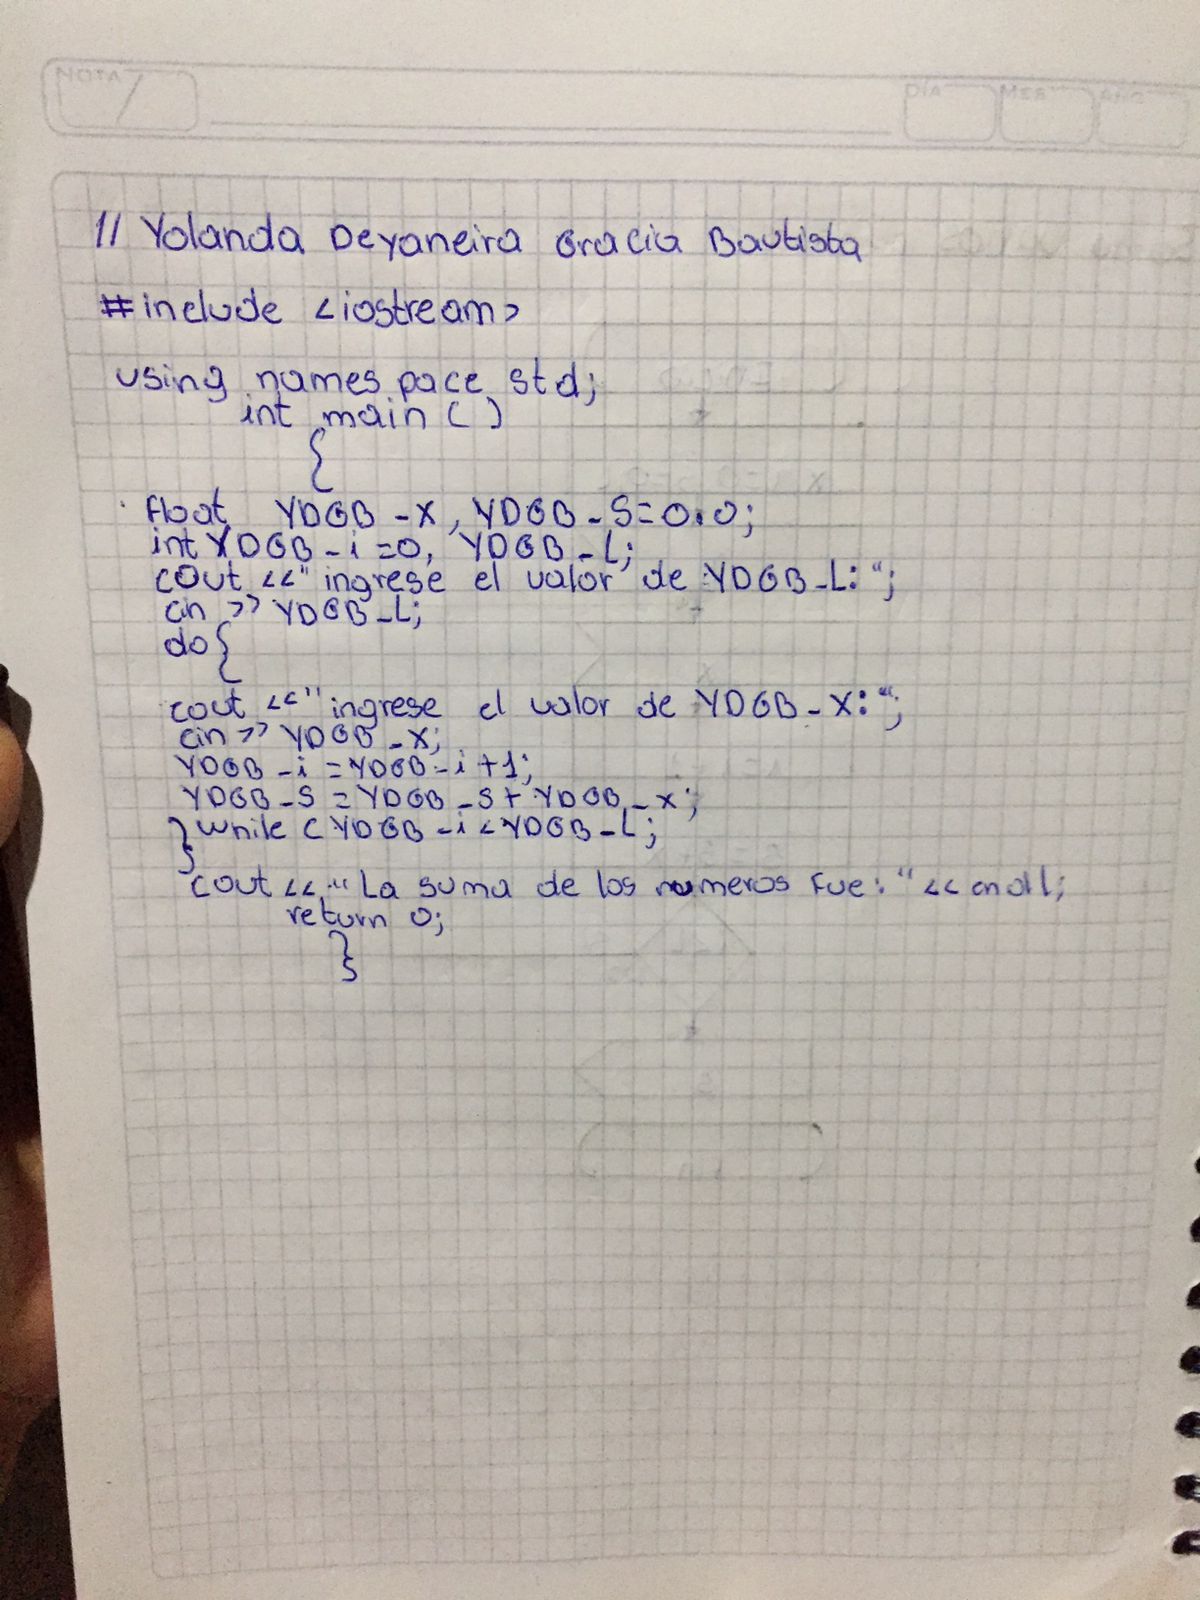 NOTA
DÍA MES AÑO
// Yolanda Deyaneira Gracia Bautista
#include <iostream>
using names pace std;
int main ( )
{
float YDGB-X, YDGB-S=0.0;
int YDGB-i=0, YDGB-L;
cout <<"ingrese el valor de YDGB-L: ";
cin >> YDGB-L;
do{
cout <<"ingrese el valor de YDGB-X: ";
cin >> YDGB-X;
YDGB-i=YDGB-i+1;
YDGB-S=YDGB-S+YDGB-x;
} while ( YDGB-i<YDGB-L;
cout <<"La suma de los numeros fue: "<< endl;
return 0;
}